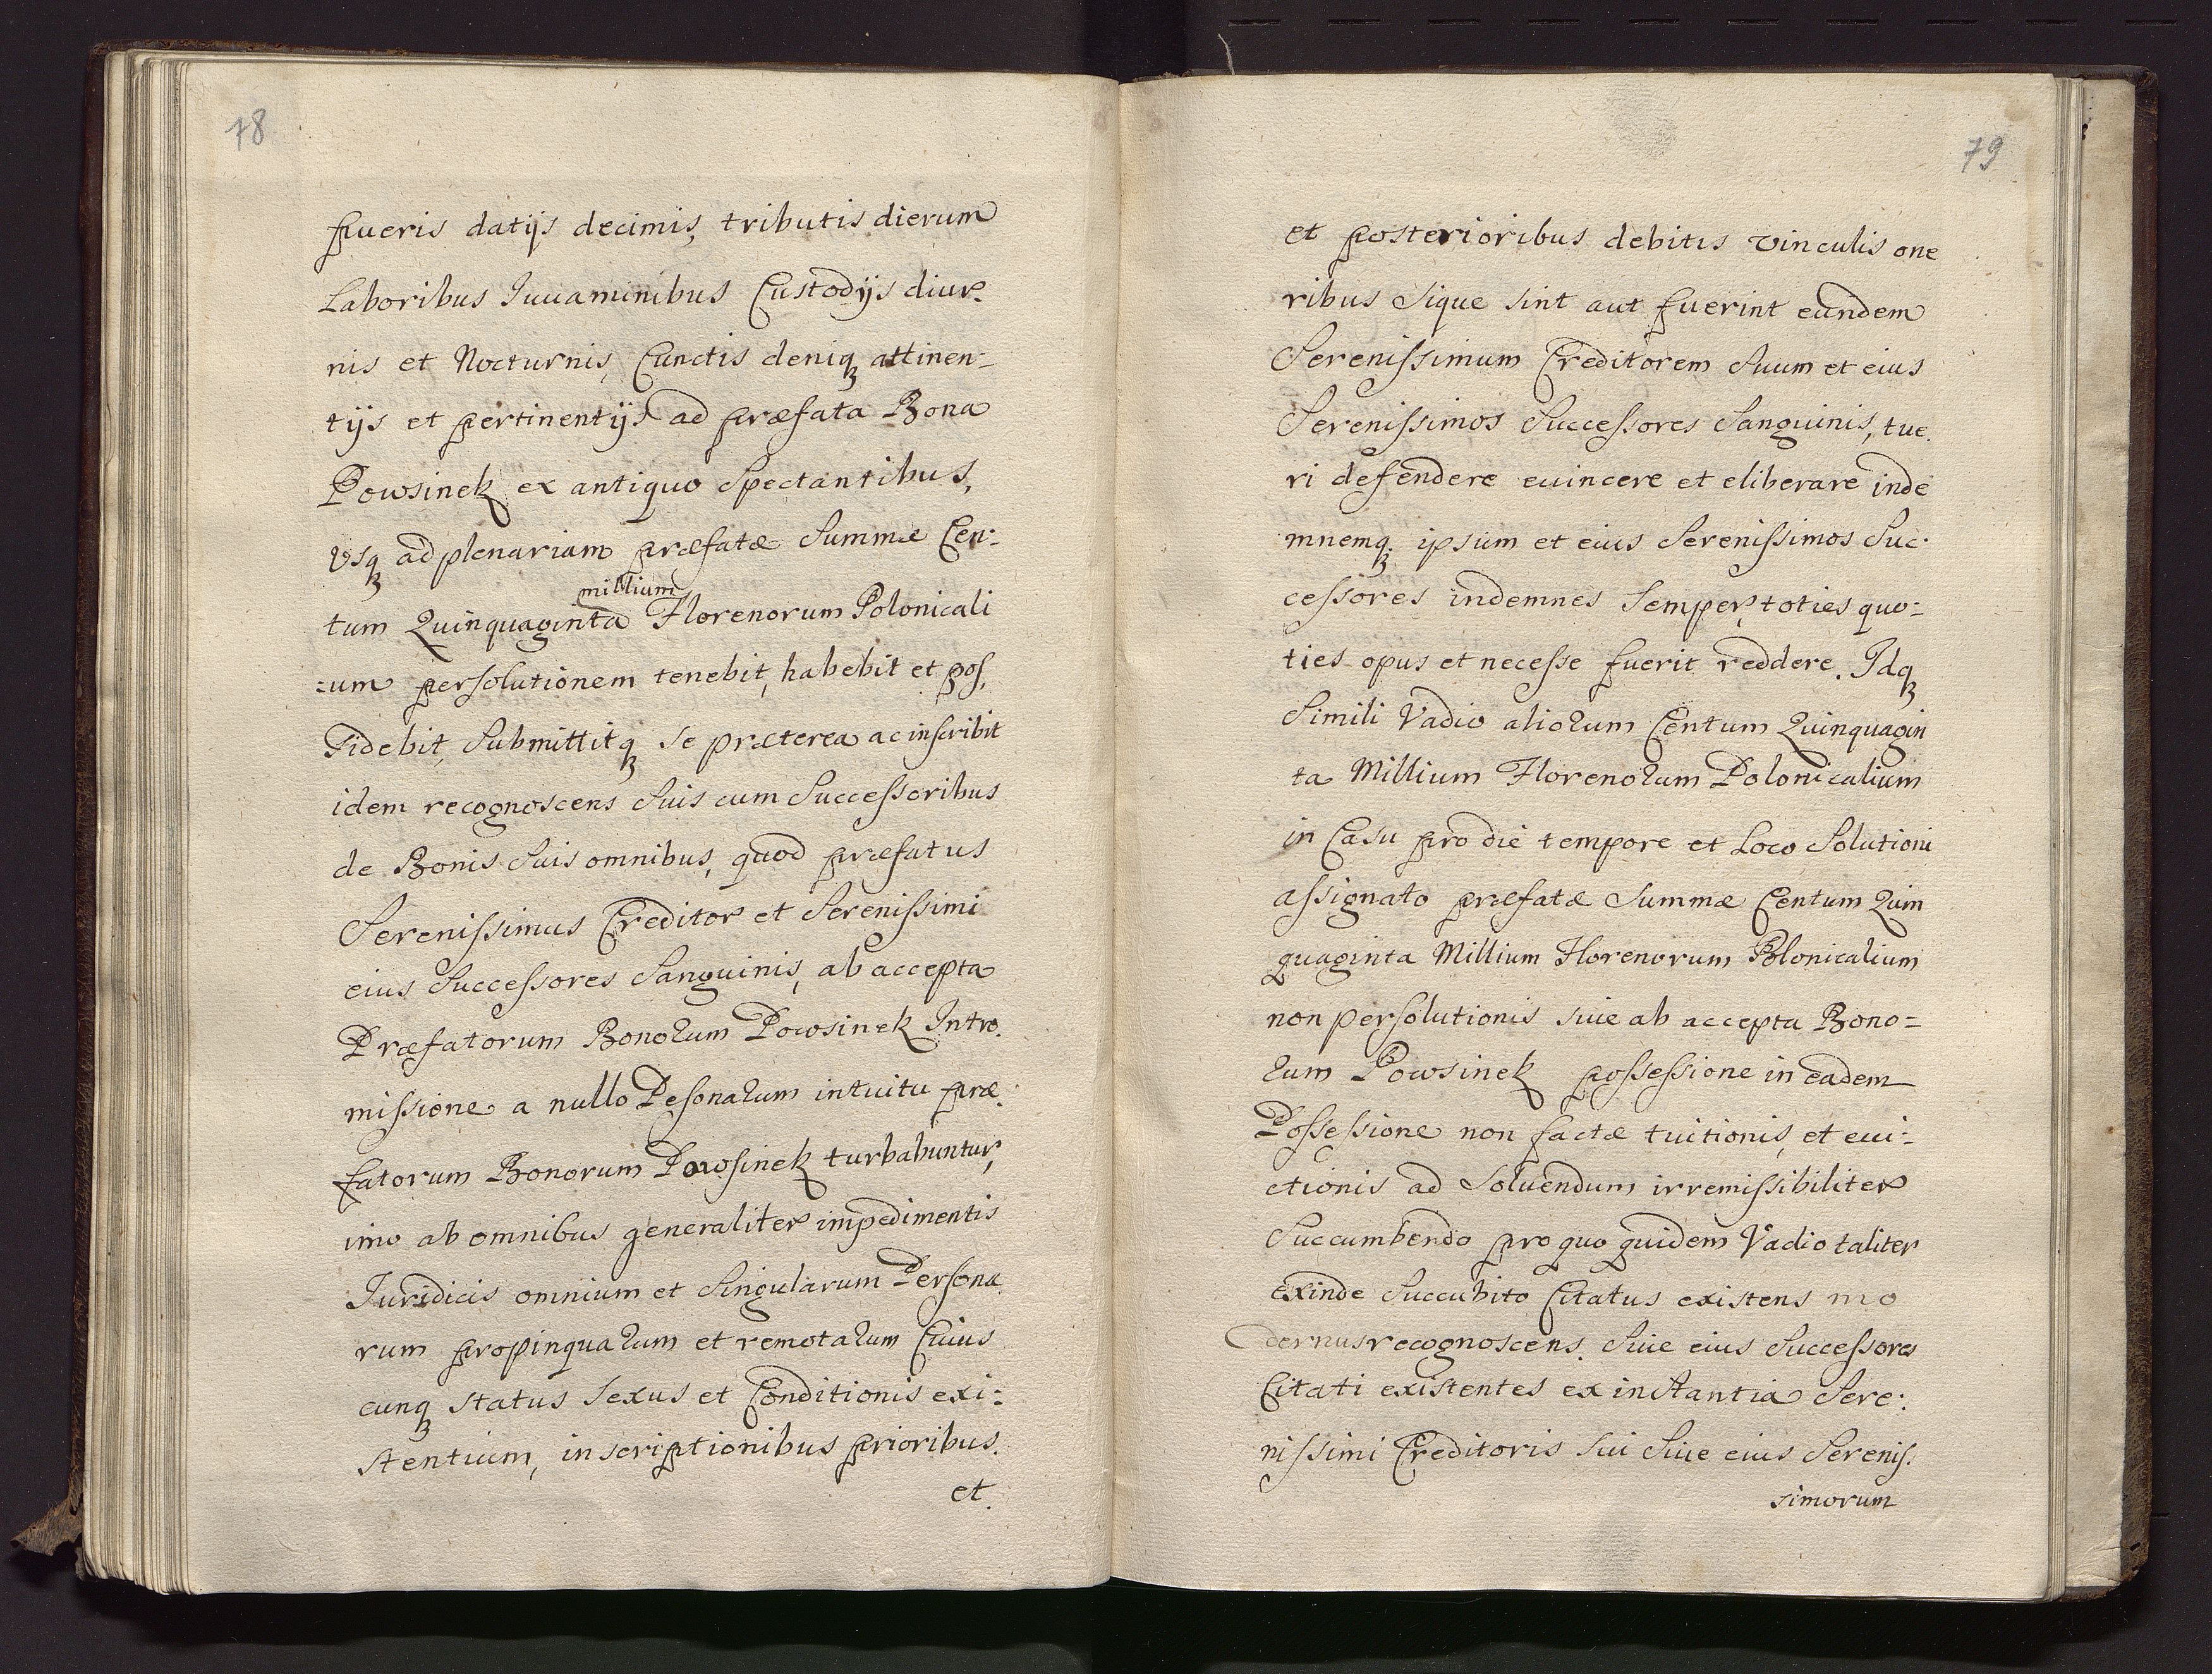 78
fueris datijs decimis, tributis dierum
Laboribus Iuuaminibus Custodijs diur.
nis et Nocturnis, Cunctis deniq attinen:
tijs et pertinentijs ad præfata Bona
Powsinek ex antiquo Spectantibus,
Vsq ad plenariam præfatæ Summæ Cen:
millium
tum Quinquaginta Florenorum Polonicali
:um persolutionem tenebit, habebit et pos,
sidebit, Submittitq se præterea ac inscribit
idem recognoscens Suis cum Successoribus
de Bonis Suis omnibus, quod præfatus
Serenissimus Creditor et Serenissimi
eius Successores Sanguinis, ab accepta
Præfatorum Bonorum Powsinek Intro.
missione a nullo Pesonarum intuitu præ.
fatorum Bonorum Powsinek turbabuntur,
imo ab omnibus generaliter impedimentis
Iuridicis omnium et Singularum Persona
rum propinquarum et remotarum Cuius
cunq status Sexus et Conditionis exi:
stentium, inscriptionibus prioribus.
et.
79
et posterioribus debitis vinculis one
ribus Sique sint aut fuerint eundem
Serenissimum Creditorem Suum et eius
Serenissimos Successores Sanguinis, tue.
ri defendere euincere et eliberare inde
mnemq. ipsum et eius Serenissimos Suc.
cessores indemnes Semper, toties quo:
ties opus et necesse fuerit reddere. Idq
Simili Vadio aliorum Centum Quinquagin
ta Millium Florenorum Polonicalium
in Casu pro die tempore et Loco Solutioni
assignato præfatæ Summæ Centum Quin
quaginta Millium Florenorum Polonicalium
non persolutionis siue ab accepta Bono=
rum Powsinek possessione in eadem
Possessione non factæ tuitionis, et eui:
ctionis ad Soluendum irremissibiliter
Succumbendo pro quo quidem Vadio taliter
exinde Succubito Citatus existens mo
dernus recognoscens. Siue eius Successores
Citati existentes ex instantia Sere:
nissimi Creditoris Sui Siue eius Serenis.
simorum